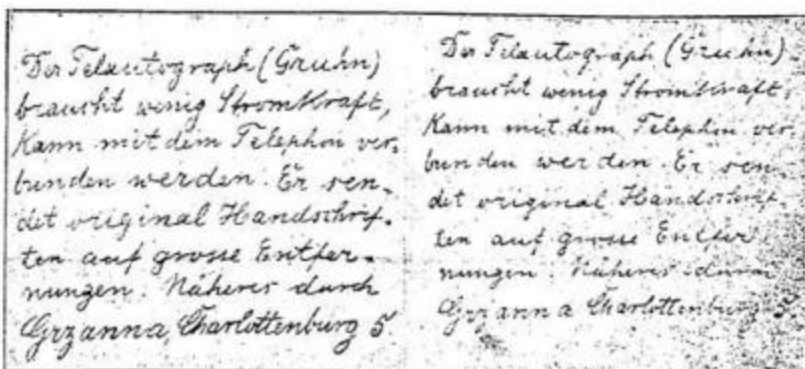 Der Telautograph (Gruhn)
braucht wenig Stromkraft,
kann mit dem Telephon ver-
bunden werden. Er sen-
det original Handschrif-
ten auf grosse Entfer-
nungen. Näheres durch
Grzanna, Charlottenburg 5.
Der Telautograph (Gruhn)
braucht wenig Stromkraft,
kann mit dem Telephon ver-
bunden werden. Er sen-
det original Handschrif-
ten auf grosse Entfer
nungen. Näheres durch
Grzanna Charlottenburg 5.